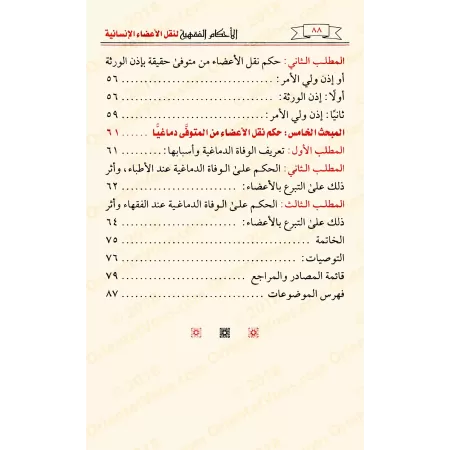 ٨٨
الأحكام الفقهية لنقل الأعضاء الإنسانية
المطلب الثاني: حكم نقل الأعضاء من متوفىٰ حقيقة بإذن الورثة
أو إذن ولي الأمر: ........................... ٥٦
أولًا: إذن الورثة: ........................... ٥٦
ثانيًا: إذن ولي الأمر: ........................... ٥٩
المبحث الخامس: حكم نقل الأعضاء من المتوفَّى دماغيًّا ...... ٦١
المطلب الأول: تعريف الوفاة الدماغية وأسبابها: ......... ٦١
المطلب الثاني: الحكم علىٰ الوفاة الدماغية عند الأطباء، وأثر
ذلك علىٰ التبرع بالأعضاء: ..................... ٦٢
المطلب الثالث: الحكم علىٰ الوفاة الدماغية عند الفقهاء وأثر
ذلك علىٰ التبرع بالأعضاء: ..................... ٦٤
الخاتمة ................................... ٧٥
التوصيات: ................................. ٧٦
قائمة المصادر والمراجع ........................ ٧٩
فهرس الموضوعات ........................... ٨٧